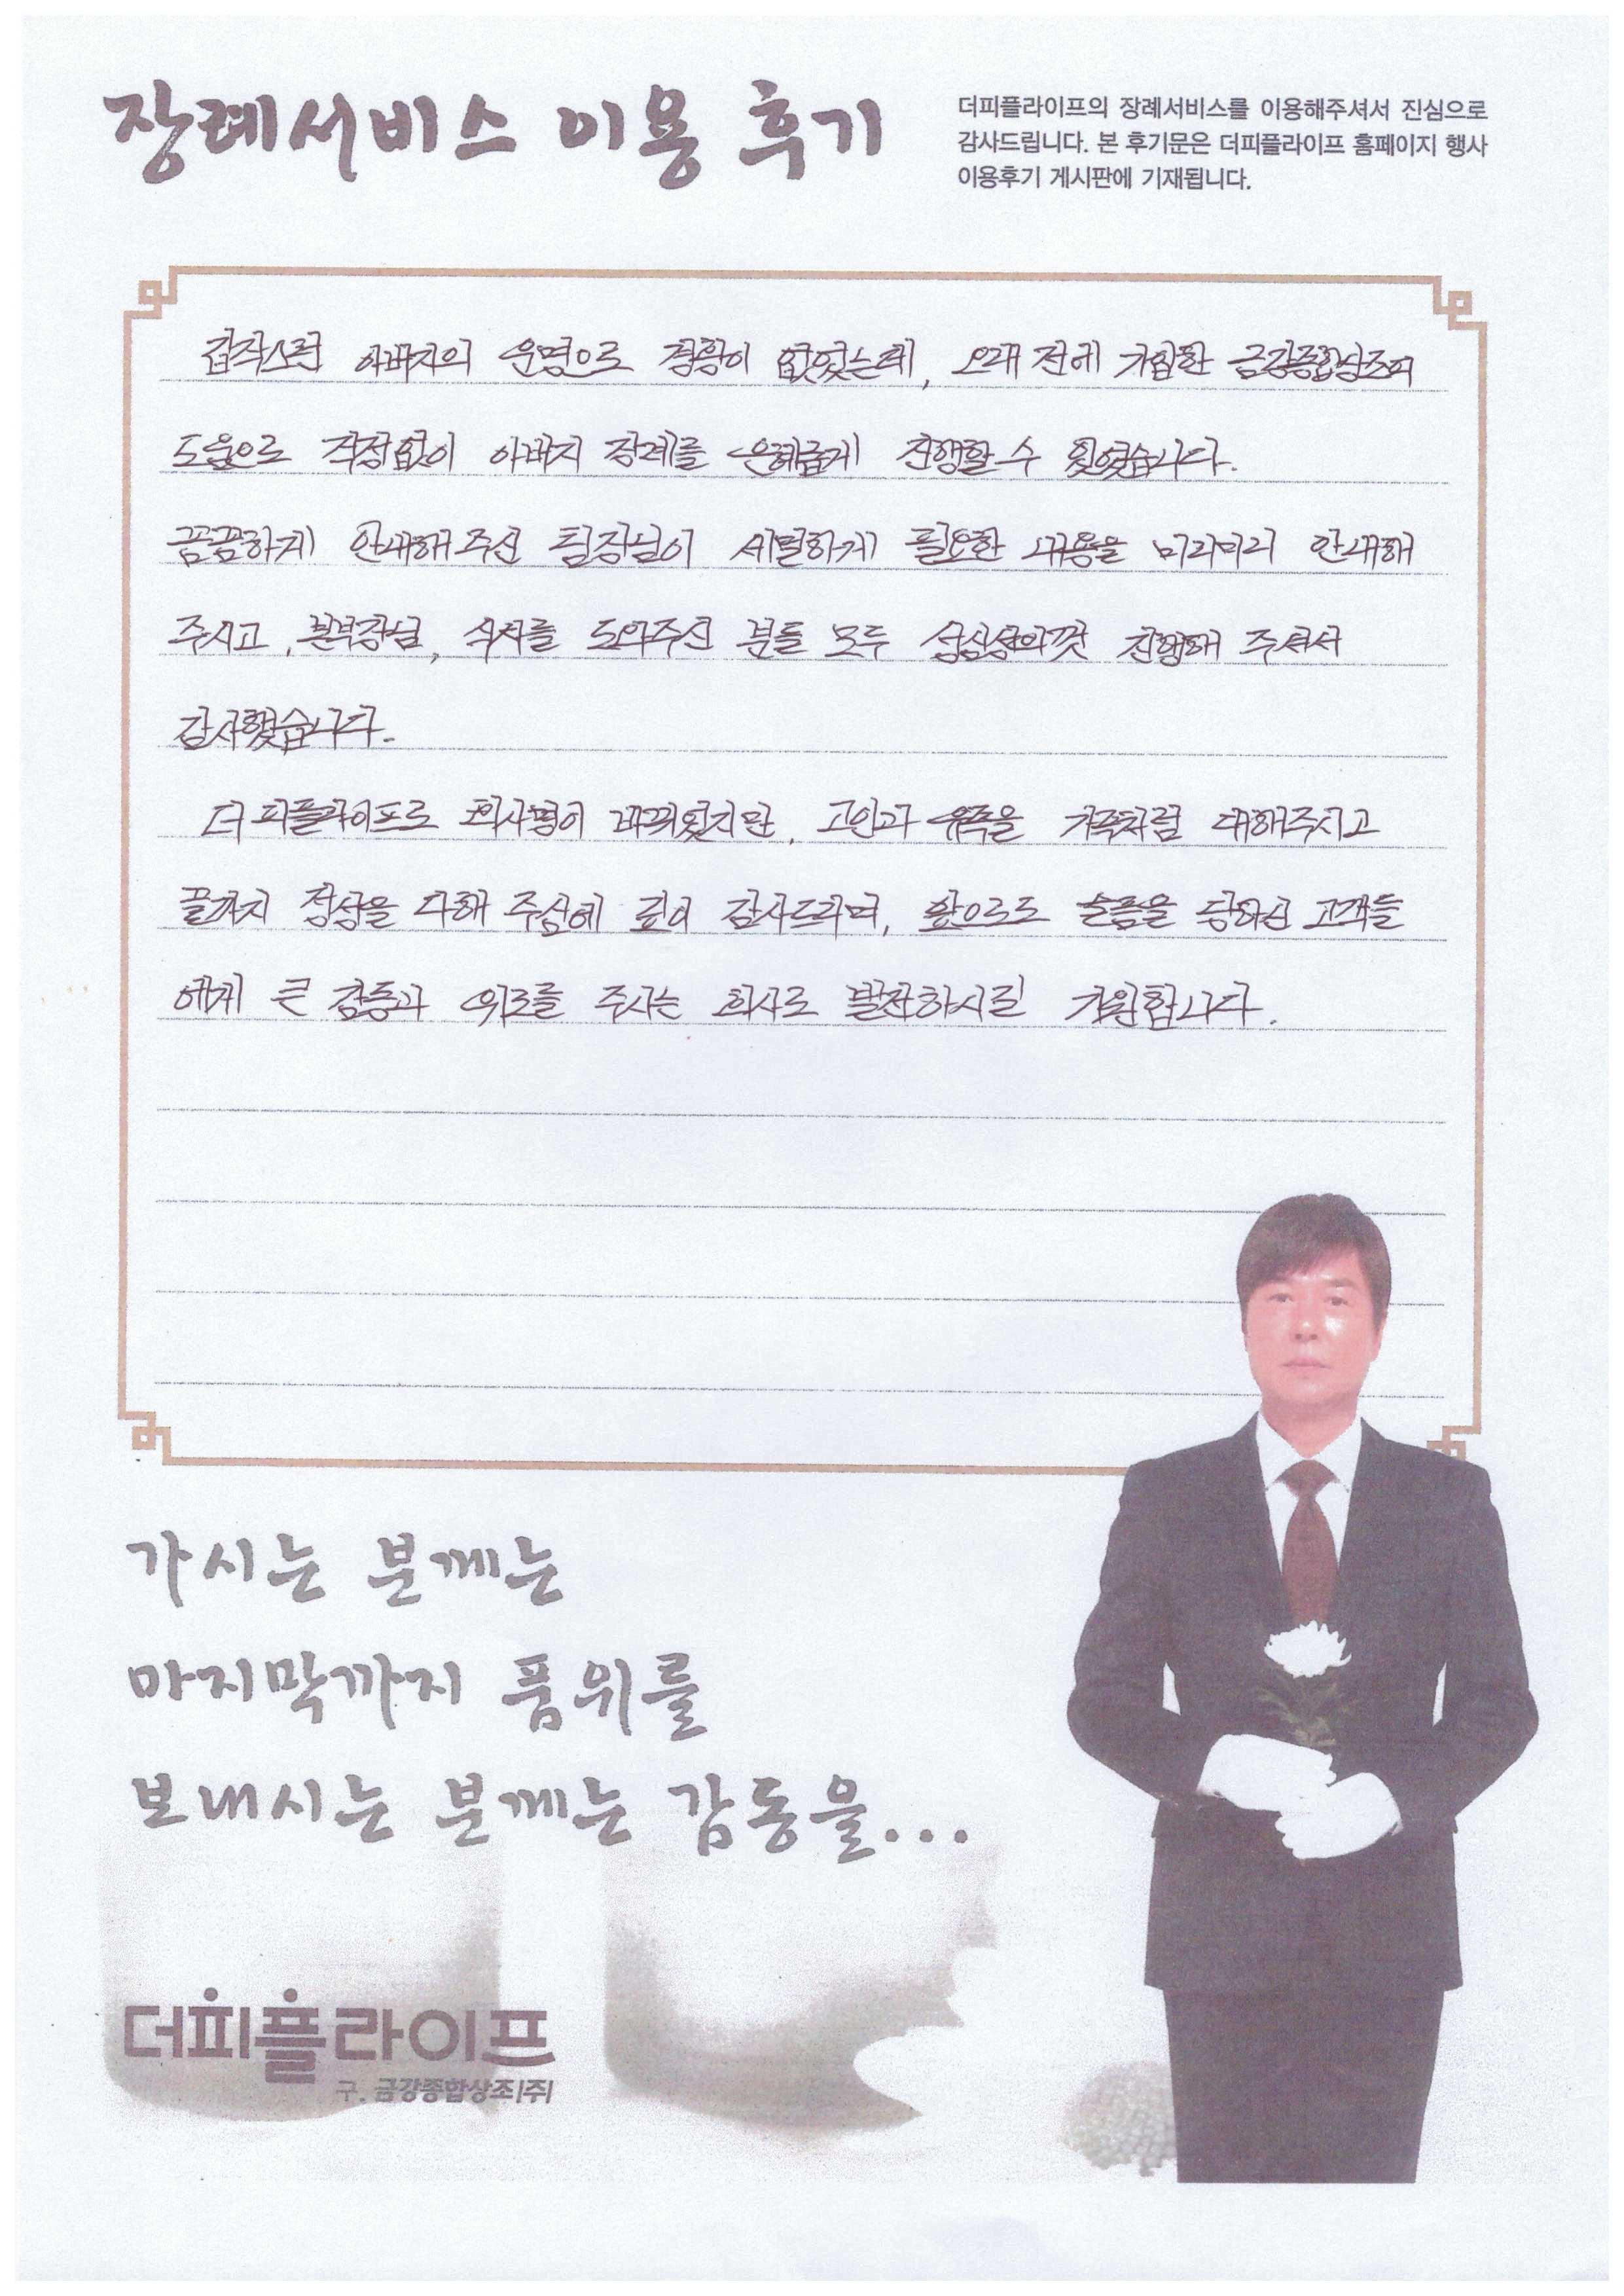 장례서비스 이용 후기
더피플라이프의 장례서비스를 이용해주셔서 진심으로
감사드립니다. 본 후기문은 더피플라이프 홈페이지 행사
이용후기 게시판에 기재됩니다.
갑작스런 아버지의 운명으로 경황이 없었는데, 오래 전에 가입한 금강종합상조의
도움으로 걱정없이 아버지 장례를 은혜롭게 진행할 수 있었습니다.
꼼꼼하게 안내해 주신 팀장님이 세밀하게 필요한 내용을 미리미리 안내해
주시고, 본부장님, 식사를 도와주신 분들 모두 성심성의껏 진행해 주셔서
감사했습니다.
더피플라이프로 회사명이 바뀌었지만, 고인과 유족을 가족처럼 대해주시고
끝까지 정성을 다해 주심에 깊이 감사드리며, 앞으로도 슬픔을 당하신 고객들
에게 큰 감동과 위로를 주시는 회사로 발전하시길 기원합니다.
가시는 분께는
마지막까지 품위를
보내시는 분께는 감동을...
더피플라이프
구. 금강종합상조(주)